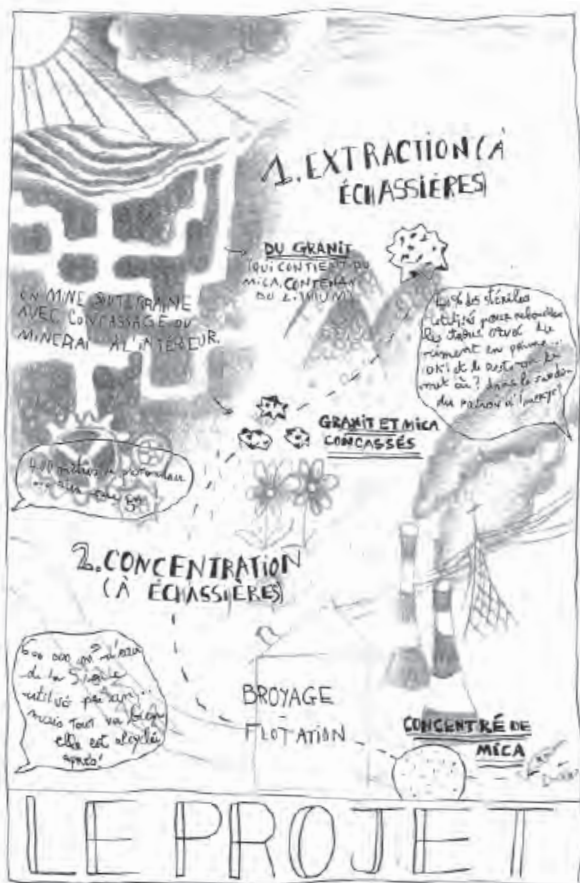 1. EXTRACTION (À
ÉCHASSIÈRES)
DU GRANIT
(QUI CONTIENT DU
MICA, CONTENANT
DU LITHIUM)
EN MINE SOUTERRAINE
AVEC CONCASSAGE DU
MINERAI À L'INTÉRIEUR.
des stériles
utilisé pour reboucher
les trous avec du
ciment en prime...
ok! et le reste on le
met où? dans le jardin
du patron d'Imerys?
GRANIT ET MICA
CONCASSÉS
400 mètres de profondeur
2. CONCENTRATION
(À ÉCHASSIÈRES)
600 000 m³ d'eau
de la Sioule
utilisé par an...
mais tout va bien
elle est
après!
BROYAGE
FLOTATION
CONCENTRÉ DE
MICA
LE PROJET